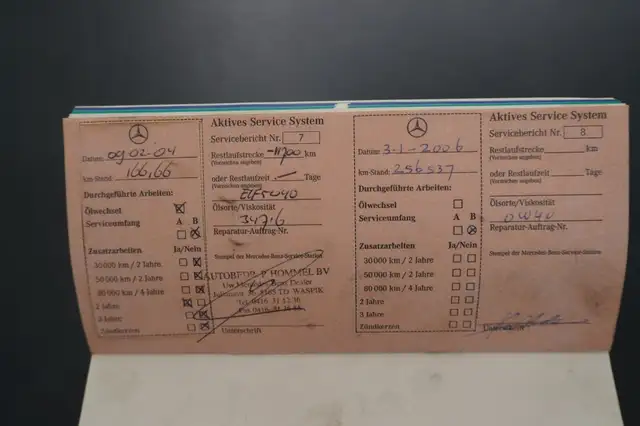 Aktives Service System
Servicebericht Nr. 7
Datum: 09-02-04
Restlaufstrecke -11700 km
(Vorzeichen angeben)
km-Stand: 166,66
oder Restlaufzeit — Tage
(Vorzeichen angeben)
Durchgeführte Arbeiten:
ELF 5W40
Ölwechsel
Ölsorte/Viskosität
Serviceumfang A B
347.6
Reparatur-Auftrag-Nr.
Zusatzarbeiten Ja/Nein
Stempel der Mercedes-Benz-Service-Station
30 000 km / 2 Jahre
50 000 km / 2 Jahre
80 000 km / 4 Jahre
2 Jahre
3 Jahre
Zündkerzen
AUTOBEDR. P HOMMEL BV
Uw Dealer
5165 TD WASPIK
Tel 0416 31 12 36
Fax 0416
Unterschrift
Aktives Service System
Servicebericht Nr. 8
Datum: 3-1-2006
Restlaufstrecke km
(Vorzeichen angeben)
km-Stand: 256537
oder Restlaufzeit Tage
(Vorzeichen angeben)
Durchgeführte Arbeiten:
Ölwechsel
Ölsorte/Viskosität
Serviceumfang A B
0W40
Reparatur-Auftrag-Nr.
Zusatzarbeiten Ja/Nein
Stempel der Mercedes-Benz-Service-Station
30 000 km / 2 Jahre
50 000 km / 2 Jahre
80 000 km / 4 Jahre
2 Jahre
3 Jahre
Zündkerzen
Unterschrift